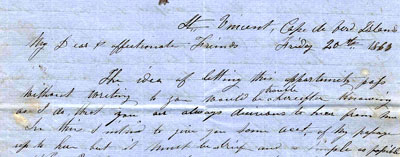 St. Vincent, Cape de Verd Island
My Dear & affectionate Friends Friday 20th 1863
The idea of letting this oppertunity pass
without writing to you would be horrible hereafter knowing
as I do that you are always desirous to hear from me
In this I intend to give you some acct. of my passage
up to here but it must be brief and as simple as possible